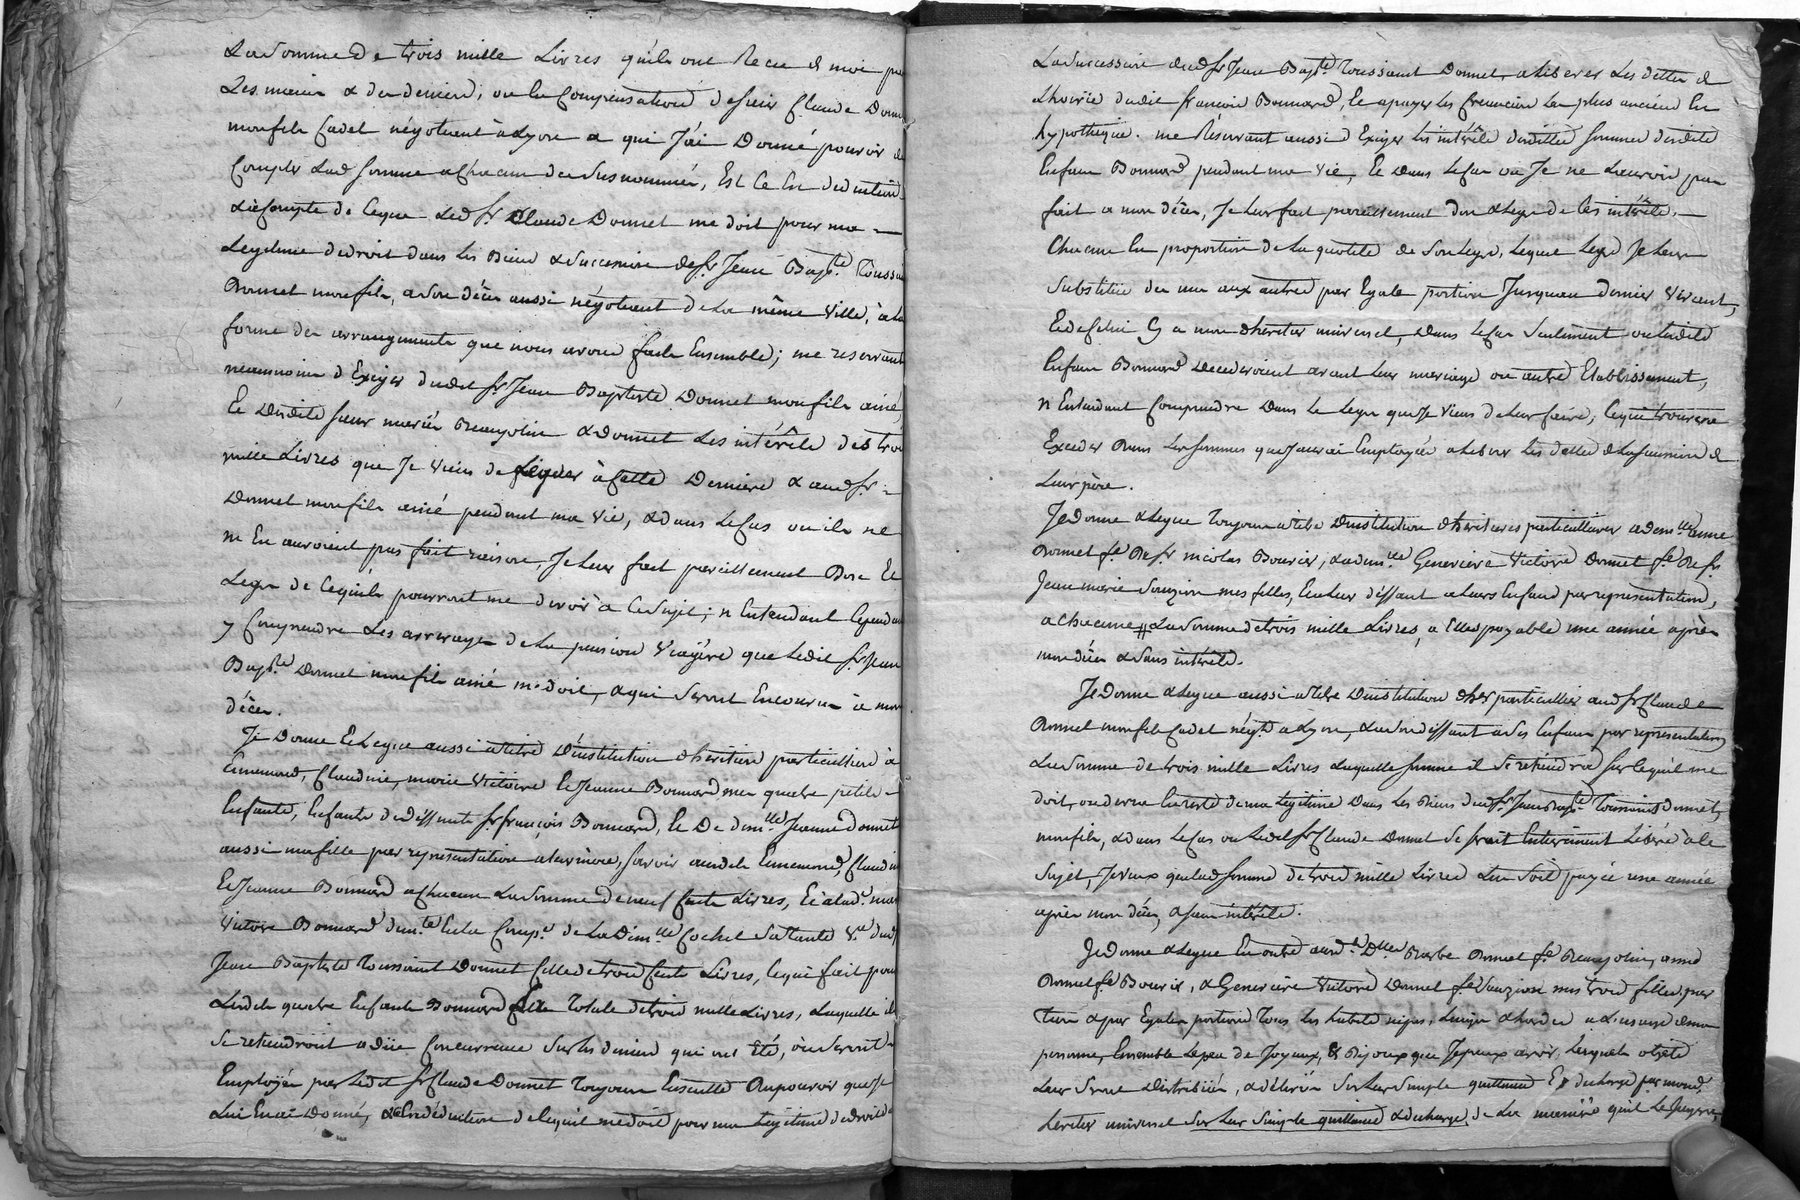 La somme de trois mille Livres qu'ils ont Recu de moi
Les mains & des deniers, ou En Compensation de sieur Claude Donnet
mon fils Cadet négotiant à Lyon a qui J'ai Donné pouvoir de
Compter Lad somme a Chacun des susnommés, Est Ce En deduction
& à Compte de Ceque Led Sr Claude Donnet me doit pour ma
Legitime de droit dans les Biens & succession de Sr Jean Bapte Toussaint
Donnet mon fils, a son décès aussi négotiant de La même Ville, à la
forme des arrangements que nous avons faits Ensemble; me reservant
neanmoins d'Exiger dudit Sr Jean Baptiste Donnet mon fils ainé,
Et Desdits sieur mariés & Donnet Les intérêts des trois
mille Livres que Je viens de Leguer à Cette Derniere & aud Sr
Donnet mon fils ainé pendant ma vie, & dans Le Cas ou ils ne
m'En auroient pas fait raison, Je Leur fait pareillement Don Et
Legs de Cequils pourront me devoir à Ce sujet; n'Entendant Cependant
y Comprendre Les arrerages de La pension Viagère que Ledit Sr Jean
Bapte Donnet mon fils ainé me doit, & qui seront Encourus à mon
décès.
Je Donne Et Legue aussi à titre D'institution d'heritiers particuliers à
Ennemond, Claudine, marie Victoire Et Jeanne Bonnard mes quatre petits
Enfants, Enfants de deffunts Sr françois Bonnard, Et De demlle Jeanne Donnet
aussi ma fille par representation a leur mère, savoir auxdits Ennemond, Claudine
Et Jeanne Bonnard a Chacun La somme de neuf Cents Livres, Et à lad. marie
Victoire Bonnard En la Compe de La Demlle Cochet sa Tante Ve dud
Jean Baptiste Toussaint Donnet Celle de trois Cents Livres, Cequi fait pour
Lesdits quatre Enfants Bonnard La Totale de trois mille Livres, Laquelle ils
se retiendront a due Concurrence sur les deniers qui ont Été, ou seront
Employés par Ledit Sr Claude Donnet Toujours Ensuitte Du pouvoir que Je
Lui En ai Donné, & En déduction de Cequil me doit pour ma Legitime de droit
La succession dud Sr Jean Bapte Toussaint Donnet, a liberer Les dettes de
L'hoirie dudit françois Bonnard, Et a payer les Creanciers les plus anciens En
hypotheque. me Réservant aussi d'Exiger les intérêts desdittes sommes desdits
Enfans Bonnard pendant ma vie, Et Dans Le Cas ou Je ne L'aurois pas
fait a mon décès, Je Leur fait pareillement Don & Legs de Ces intérêts,
Chacun En proportion de La quotité de son Legs, Lequel Legs Je Leur
substitue des uns aux autres par Egale portion Jusqu'au dernier Vivant,
Et de Celui Cy a mon heritier universel, Dans Le Cas seulement ou Lesdits
Enfans Bonnard decederoient avant Leur mariage ou autre Etablissement,
n'Entendant Comprendre Dans Le Legs que Je viens de Leur faire, Cequi trouvera
Exceder Dans Les sommes que J'aurai Employées a Liberer Les dettes de La succession de
Leur père.
Je Donne & Legue Toujours à titre D'institution d'heritieres particulieres a demlle anne
Donnet fe De Sr nicolas Bouvier, & a demlle Genevieve Victoire Donnet fe De Sr
Jean marie Souzion mes filles, Et a Leur deffaut a Leurs Enfans par representation,
a Chacune La somme de trois mille Livres, a Elles payable une année après
mon décès & sans intérêts.
Je Donne & Legue aussi a titre D'institution dher particullier aud Sr Claude
Donnet mon fils Cadet négt a Lyon, & a son deffaut a Ses Enfans par representation
La somme de trois mille Livres Laquelle somme il se retiendra sur Cequil me
doit, ou devra En reste de ma Legitime Dans Les Biens dud Sr Jean Bapte Toussaint Donnet,
mon fils, & dans Le Cas ou Ledit Sr Claude Donnet se seroit Entierement Libéré à Ce
sujet, Je veux que lad somme de trois mille Livres Lui soit payée une année
après mon décès, & sans intérêts.
Je Donne & Legue En outre auxd. Dlles Barbe Donnet fe, anne
Donnet fe Bouvier, & Genevieve Victoire Donnet fe Souzion mes trois filles, par
Tiers & par Egales portions Tous Les habits nipes, Linges & hardes a L'usage de ma
personne, Ensemble Le peu de Joyaux, & Bijoux que Je peux avoir, Lesquels objets
Leur seront distribués, & délivrés sur Leur simple quittance Et decharge par mond.
heritier universel sur Leur simple quittance & decharge, de La manière quil Le Jugera